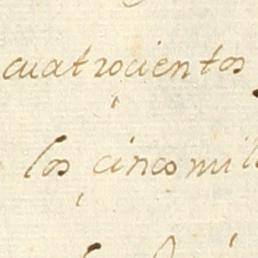 cuatrocientos
los cinco mil